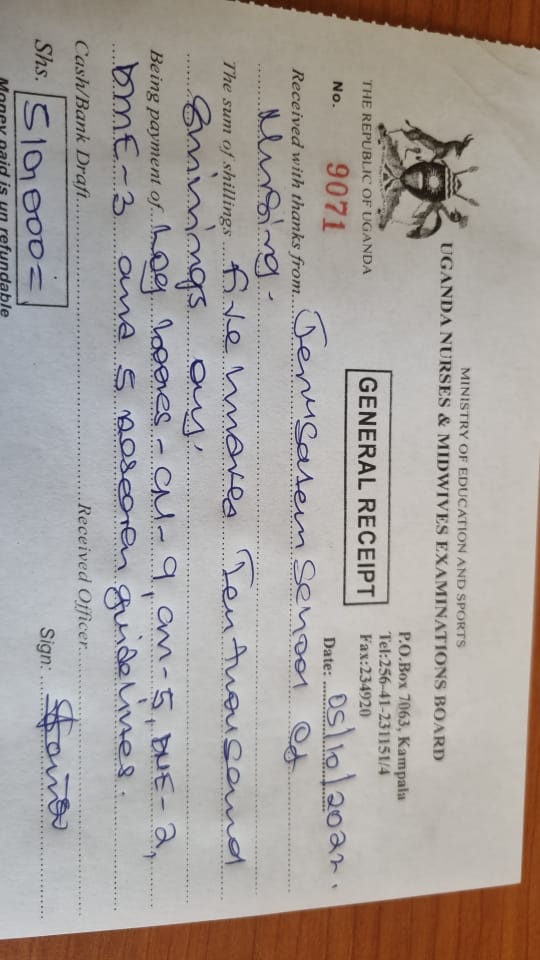 MINISTRY OF EDUCATION AND SPORTS
UGANDA NURSES & MIDWIVES EXAMINATIONS BOARD
P.O.Box 7063, Kampala
Tel:256-41-231151/4
Fax:234920
THE REPUBLIC OF UGANDA
GENERAL RECEIPT
No. 9071
Date: 05/10/2022.
Received with thanks from Jerusalem School of
Nursing.
The sum of shillings five Ten thousand
Shillings only.
Being payment of Log books - CN-9, CM-5, DNE-2,
DME-3 and 5 research guidelines.
Cash/Bank Draft
Received Officer
Shs. 510,000=
Sign:
Money paid is un refundable